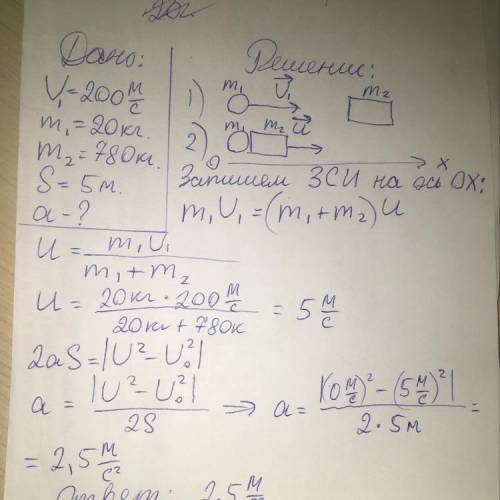 Дано:
V₁=200 м/с
m₁=20кг.
m₂=780кг.
S=5м.
a-?
Решение:
1) m₁ V⃗₁ m₂
2) m₁ m₂ U⃗
0 x
Запишем ЗСИ на ось OX:
m₁V₁=(m₁+m₂)U
U = m₁V₁ / m₁+m₂
U = 20кг·200 м/с / 20кг+780к = 5 м/с
2aS=|U²-U₀²|
a = |U²-U₀²| / 2S ⟹ a = |(0 м/с)²-(5 м/с)²| / 2·5м =
= 2,5 м/с²
Ответ: 2,5 м